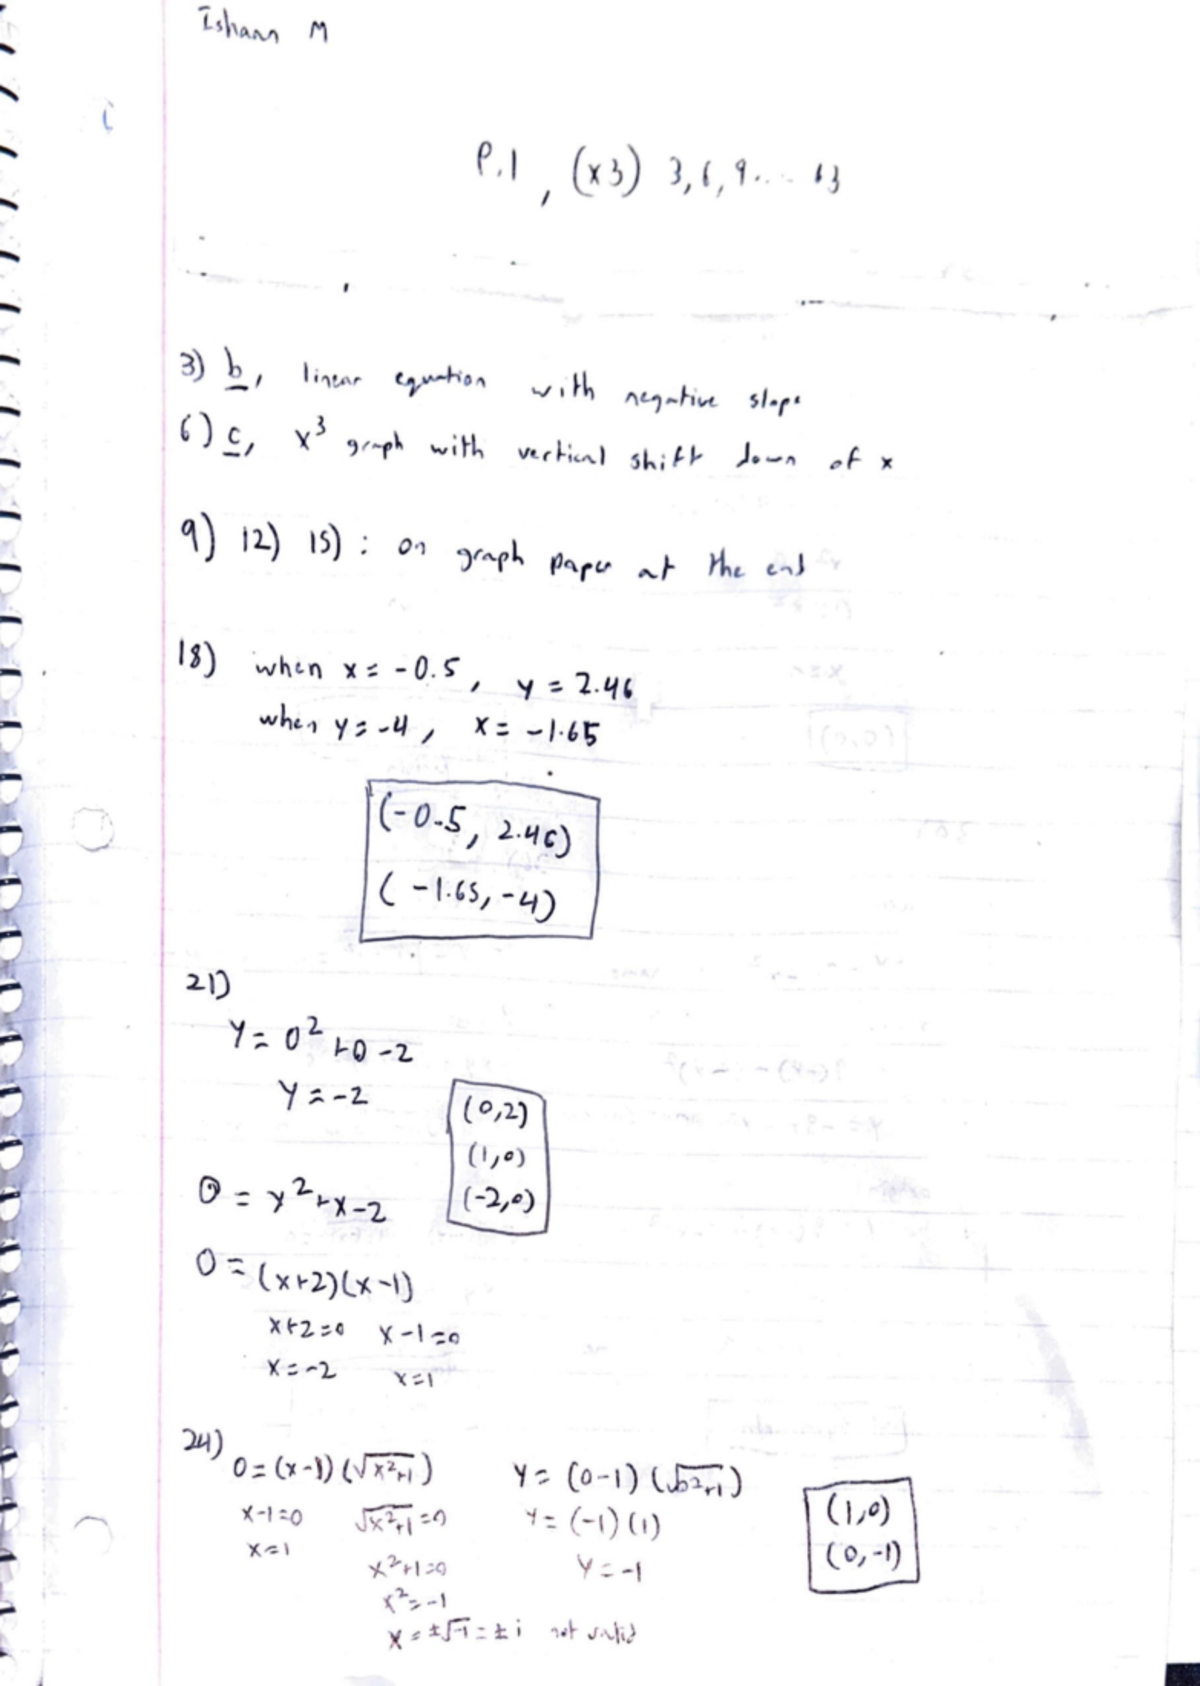 Ishaan M
P.1, (x3) 3,6,9.... 63
3) b, linear equation with negative slope
6) c, x³ graph with vertical shift down of x
9) 12) 15) : on graph paper at the end
18) when x = -0.5, y = 2.46
when y = -4, x = -1.65
(-0.5, 2.46)
(-1.65, -4)
21)
y = 0² + 0 - 2
y = -2
(0,2)
(1,0)
(-2,0)
0 = x² + x - 2
0 = (x+2)(x-1)
x+2=0 x-1=0
x=-2 x=1
24)
0 = (x-1)(√x²+1)
x-1=0 √x²+1=0
x=1
x²+1=0
x²=-1
x = ±√-1 = ±i not valid
y = (0-1)(√0²+1)
y = (-1)(1)
y = -1
(1,0)
(0,-1)